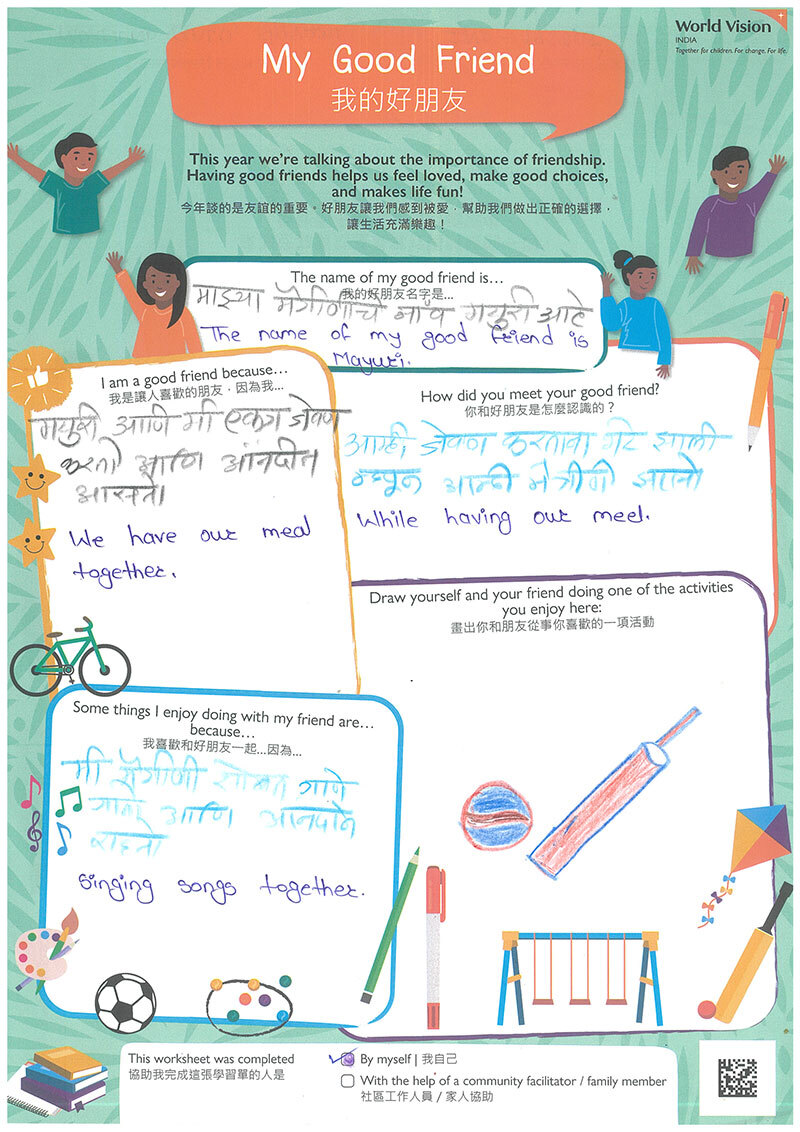 World Vision
INDIA
Together for children. For change. For life.
My Good Friend
我的好朋友
This year we're talking about the importance of friendship.
Having good friends helps us feel loved, make good choices,
and makes life fun!
今年談的是友誼的重要。好朋友讓我們感到被愛，幫助我們做出正確的選擇，
讓生活充滿樂趣！
The name of my good friend is…
我的好朋友名字是...
माझ्या मैत्रीणीचे नाव मयुरी आहे
The name of my good friend is
Mayuri.
I am a good friend because…
我是讓人喜歡的朋友，因為我...
मयुरी आणि मी एकत्र जेवण
करतो आणि आंनदीन
आसतो।
We have our meal
together.
How did you meet your good friend?
你和好朋友是怎麼認識的？
आम्ही जेवण करताना भेट झाली
म्हणून आम्ही मैत्रीणी झालो
While having our meel.
Draw yourself and your friend doing one of the activities
you enjoy here:
畫出你和朋友從事你喜歡的一項活動
Some things I enjoy doing with my friend are…
because…
我喜歡和好朋友一起...因為...
मी मैत्रीणी सोबत गाणे
आणि आनदाने
राहतो
Singing songs together.
This worksheet was completed
協助我完成這張學習單的人是
By myself | 我自己
With the help of a community facilitator / family member
社區工作人員 / 家人協助